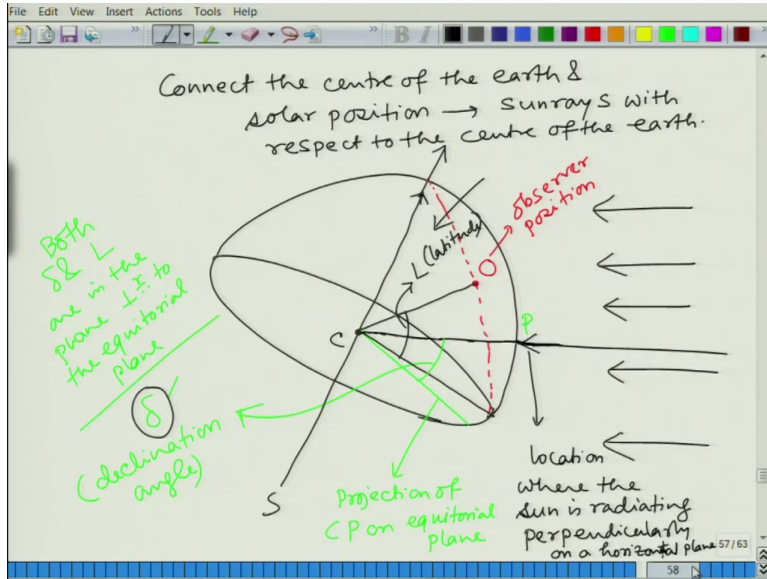 File Edit View Insert Actions Tools Help
B I
Connect the centre of the earth &
solar position → sunrays with
respect to the centre of the earth.
observer
position
O
L (latitude)
Both
δ & L
are in the
plane ⊥r to
the equitorial
plane
C
P
δ
(declination
angle)
S
Projection of
CP on equitorial
plane
location
where the
sun is radiating
perpendicularly
on a horizontal plane
57/63
58